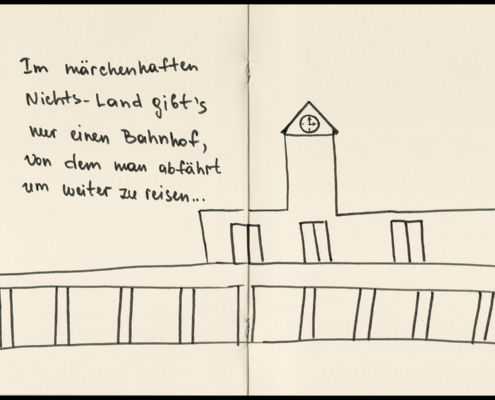 Im märchenhaften
Nichts-Land gibt's
nur einen Bahnhof,
von dem man abfährt
um weiter zu reisen...